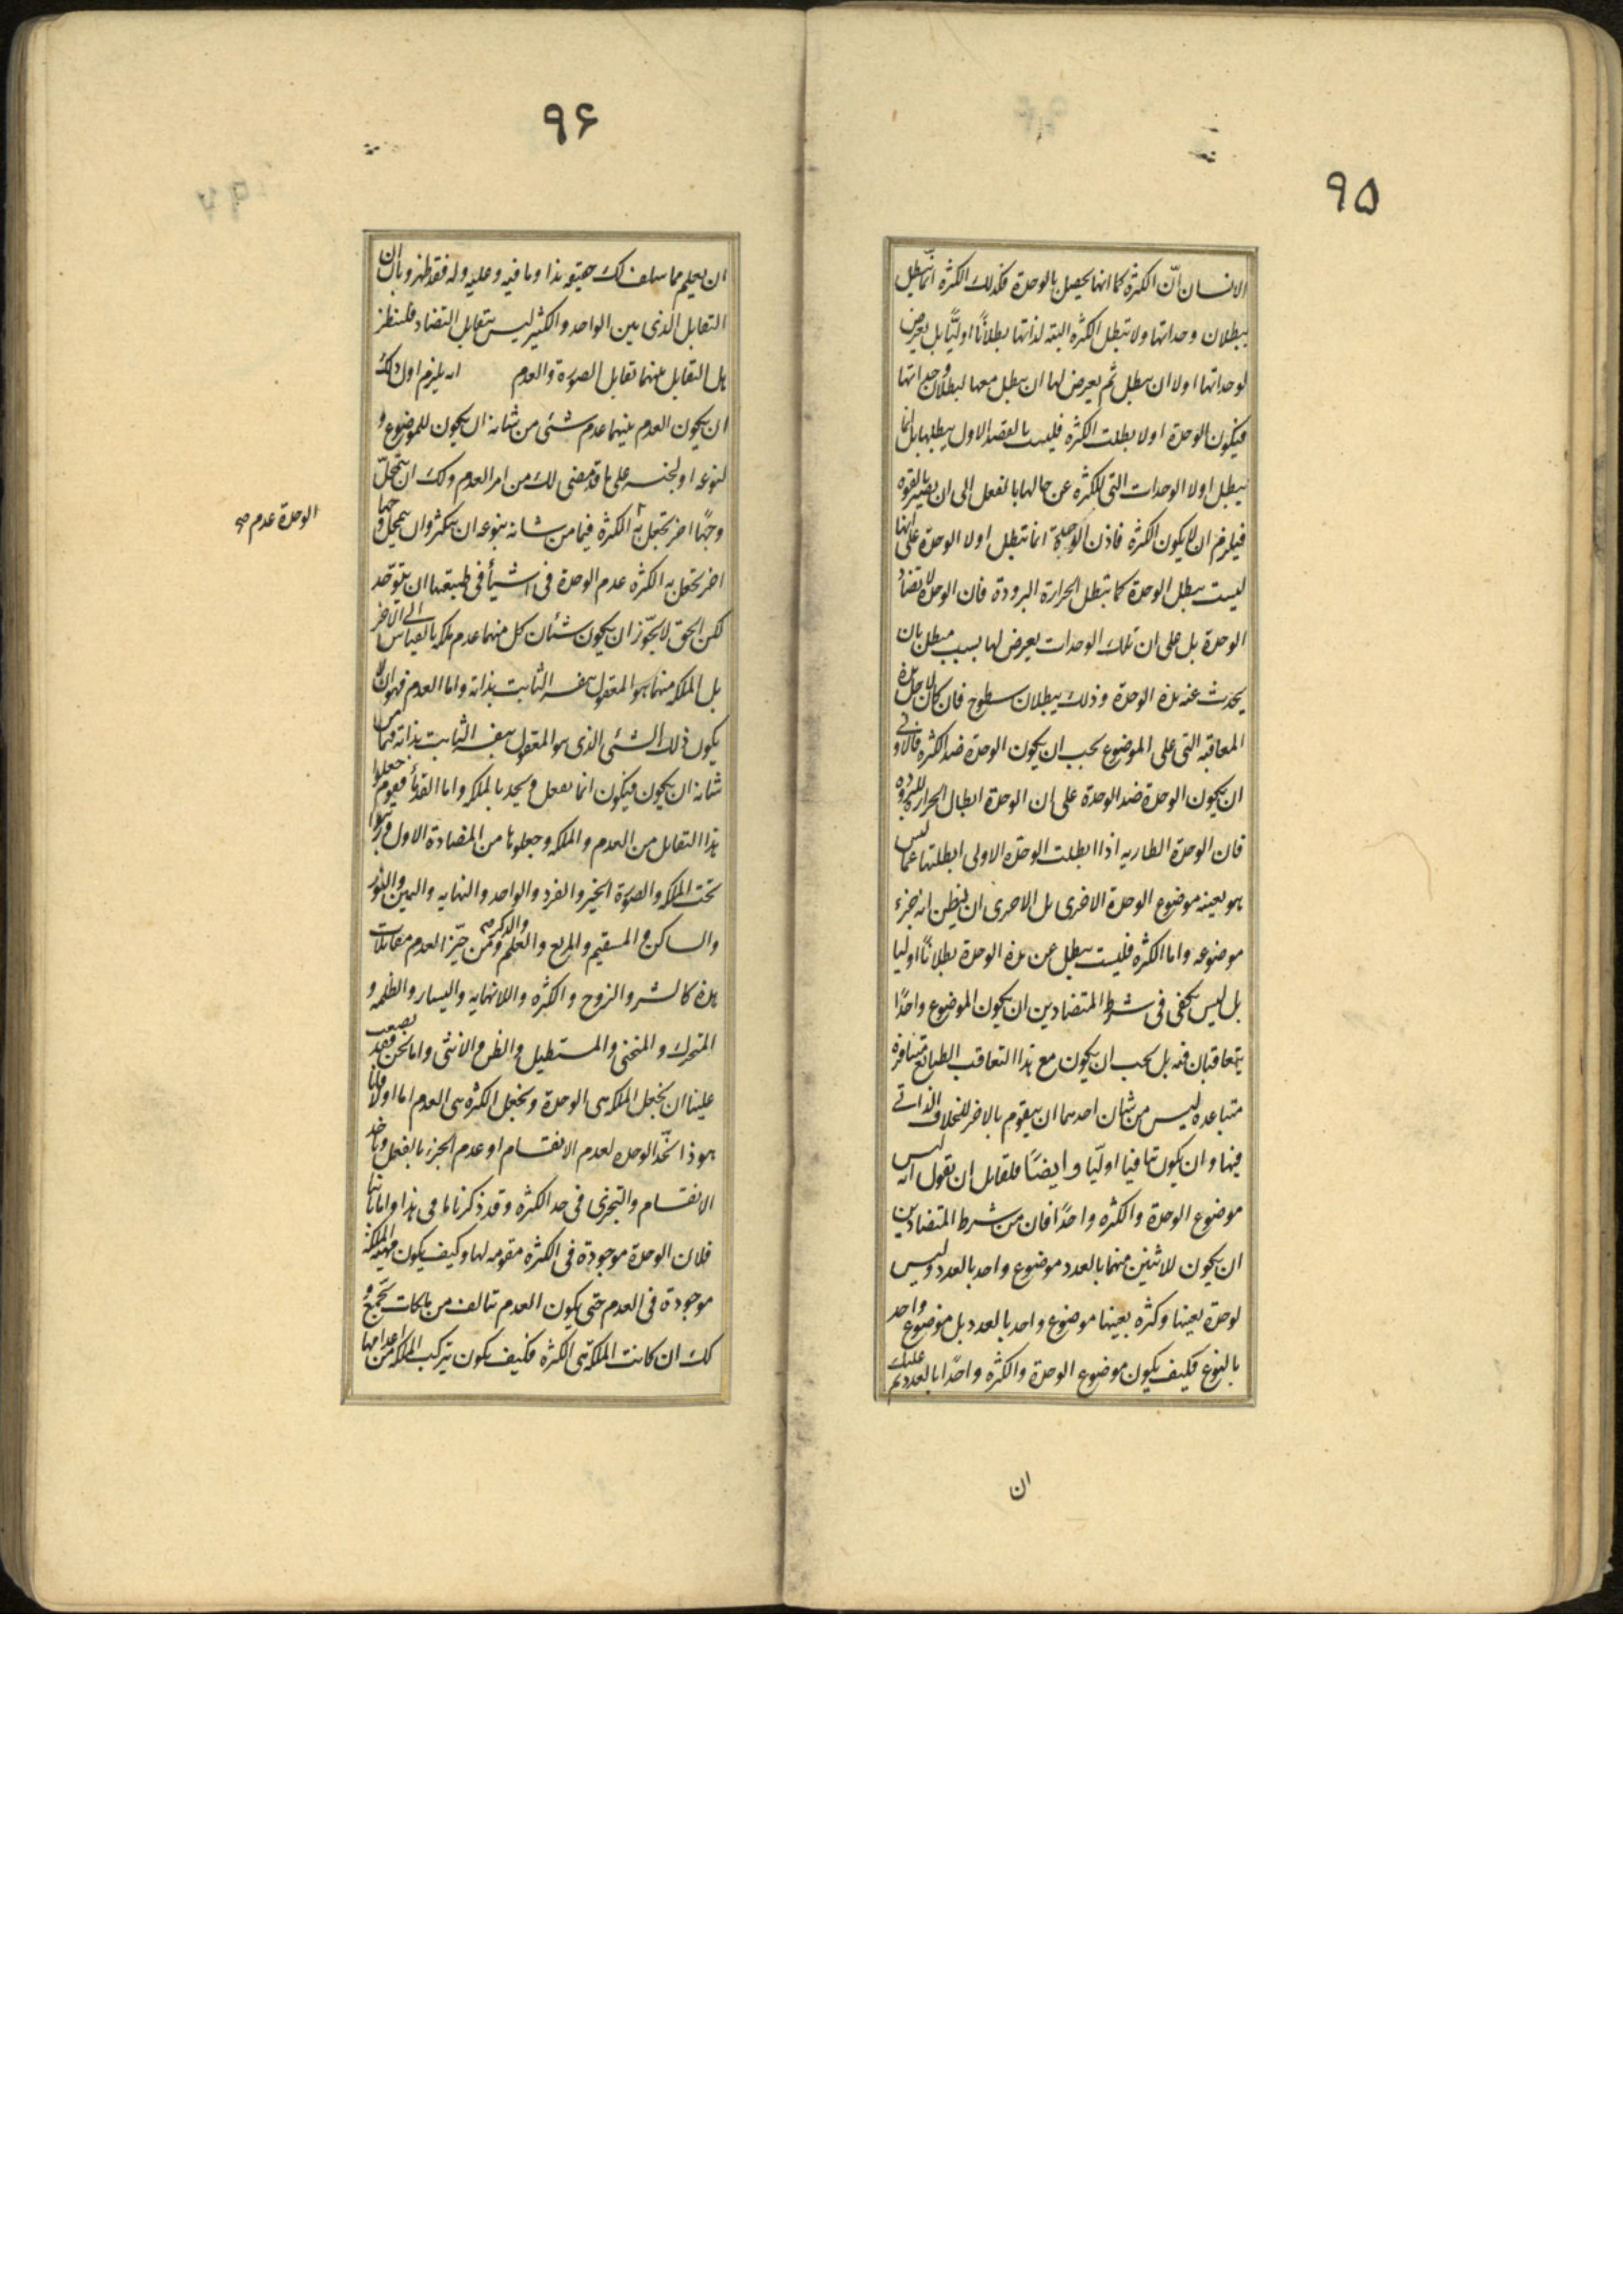 ٩٥
الانسان انّ الكثرة كما انها يحصل بالوحدة فكذلك الكثرة انّما تبطل
ببطلان وحداتها ولا تبطل الكثره البته لذاتها بطلانًا اوليًّا بل يعرض
لوحداتها اولا ان تبطل ثم يعرض لها ان تبطل معها لبطلان وحداتها
فيكون الوحدة اولا بطلت الكثره فليست بالقصد الاول يبطلها بل انما
يبطل اولا الوحدات التى للكثره عن حالها بالفعل الى ان يصير بالقوه
فيلزم ان لا يكون الكثره فاذن الوحدة انما تبطل اولا الوحدة على انها
ليست يبطل الوحدة كما تبطل الحرارة البرودة فان الوحدة لا تضاد
الوحدة بل على ان تلك الوحدات يعرض لها بسبب مبطل بان
يحدث عنه هذه الوحدة وذلك ببطلان سطوح فان كان لاجل هذه
المعاقبة التى على الموضوع يجب ان يكون الوحدة ضد الكثره فالاولى
ان يكون الوحدة ضد الوحدة على ان الوحدة ابطال الحرارة للبرودة
فان الوحدة الطاريه اذا ابطلت الوحدة الاولى ابطلتها عما ليس
هو بعينه موضوع الوحدة الاخرى بل الاحرى ان يظن انه جزء
موضوعه واما الكثره فليست تبطل عن هذه الوحدة بطلانًا اوليا
بل ليس يكفى فى شرط المتضادين ان يكون الموضوع واحدًا
يتعاقبان فيه بل يجب ان يكون مع هذا التعاقب الطبايع متنافرة
متباعده ليس من شان احدهما ان يتقوم بالاخر للخلاف الذاتى
فيها وان يكون تنافيا اوليّا وايضًا فلقايل ان يقول انه ليس
موضوع الوحدة والكثره واحدًا فان من شرط المتضادين
ان يكون للاثنين منهما بالعدد موضوع واحد بالعدد وليس
لوحدة بعينها وكثره بعينها موضوع واحد بالعدد بل موضوع واحد
بالنوع فكيف يكون موضوع الوحدة والكثره واحدًا بالعدد ثم عليك
ان
٩۶
ان يعلم مما سلف لك حقيقه هذا وما فيه وعليه وله فقد ظهر وبان ان
التقابل الذى بين الواحد والكثير ليس بتقابل التضاد فلننظر
هل التقابل بينهما تقابل الصورة والعدم انه يلزم اول ذلك
ان يكون العدم منهما عدم شئى من شانه ان يكون للموضوع و
لنوعه او لجنسه على ما قد مضى لك من امر العدم ولك ان تتمحّل
وجهًا اخر تجعل به الكثرة فيما من شانه بنوعه ان يتكثر وان تتمحل وجها
الوحدة عدم صح
اخر تجعل به الكثره عدم الوحدة فى اشيأ فى طبيعتها ان يتوحّد
لكن الحق لا يجوّز ان يكون شئان كل منهما عدم ملكه بالقياس الى الاخر
بل الملكه منهما هو المعقول بنفسه الثابت بذاته واما العدم فهو ان لا
يكون ذلك الشئى الذى هو المعقول بنفسه الثابت بذاته فيما من
شانه ان يكون فيكون انما يعقل ويحد بالملكه واما القدمأ فقوم جعلوا
هذا التقابل من العدم والملكه وجعلوها من المضادة الاول ورتبوا
تحت الملكه والصورة الخير والفرد والواحد والنهايه واليمين والنور
والساكن والمستقيم والمربع والعلم والذكر صح ومن حيّز العدم مقابلات
هذه كالشر والزوج والكثره واللانهايه واليسار والظلمه و
المتحرك والمنحنى والمستطيل والظن والانثى واما نحن فقد يصعب
علينا ان نجعل الملكه هى الوحدة ونجعل الكثره هى العدم اما اولا فانا
هوذا نحّد الوحده لعدم الانقسام او عدم الجزء بالفعل وناخذ
الانقسام والتجزى فى حد الكثره وقد ذكرنا ما فى هذا واما ثانيا
فلان الوحدة موجودة فى الكثره مقومه لها وكيف يكون مهية الملكه
موجودة فى العدم حتى يكون العدم يتالف من ملكات تجمع و
كك ان كانت الملكة هى الكثره فكيف يكون يتركب الملكه من اعدامها